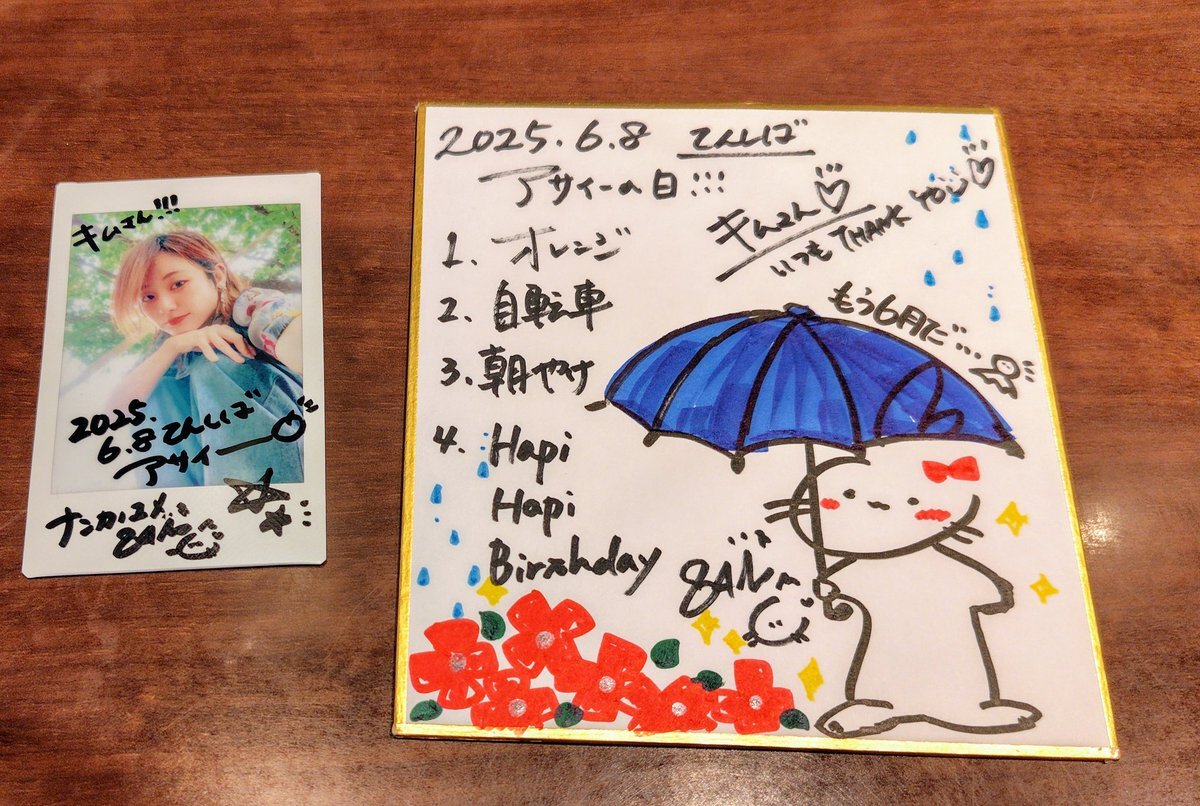 キムさん!!!
2025.
6.8 てんしば
アサイー
2025.6.8 てんしば
アサイーの日!!!
キムさん♡
いつも THANK YOU♡
1. オレンジ
2. 自転車
3. 朝やけ
4. Hapi
Hapi
Birthday
もう6月だ…